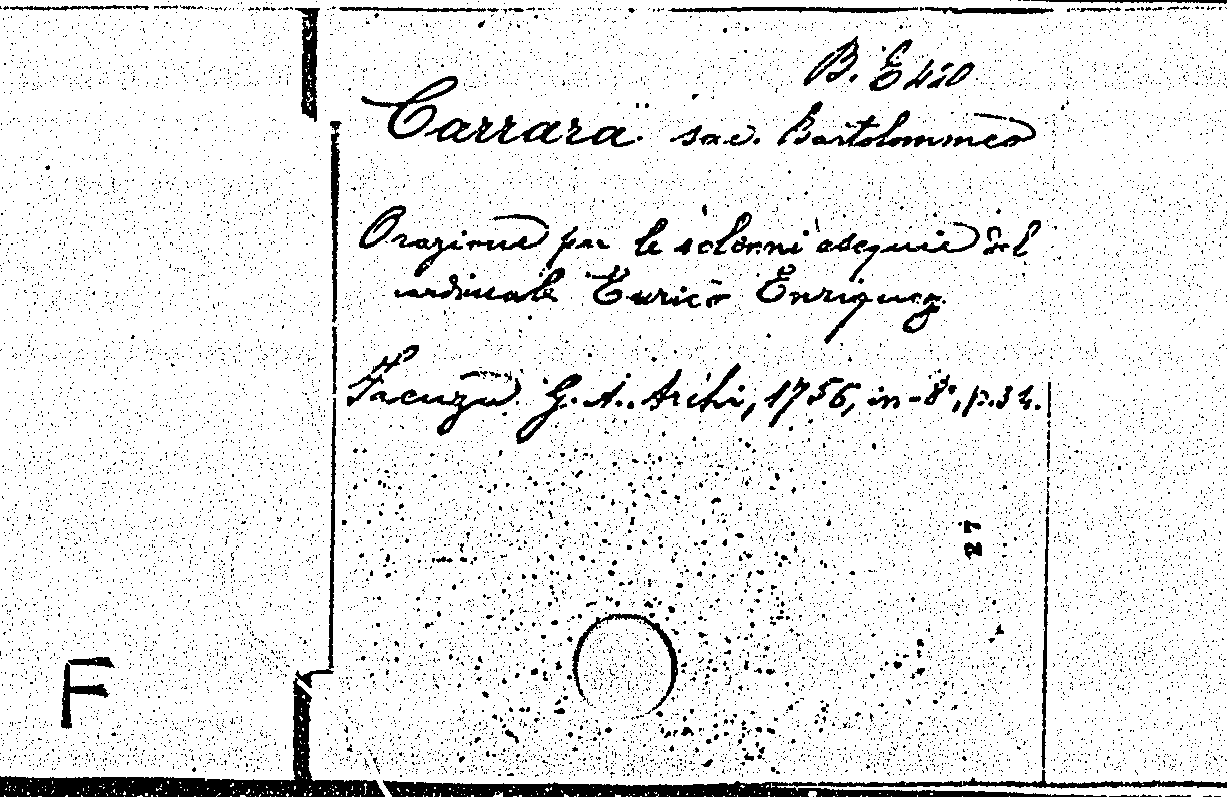 B. E 420
Carrara sac. Bartolommeo
Orazione per le solenni esequie del
cardinale Enrico Enriquez
Faenza G. A. Archi, 1756, in-8°, p. 34.
27
F